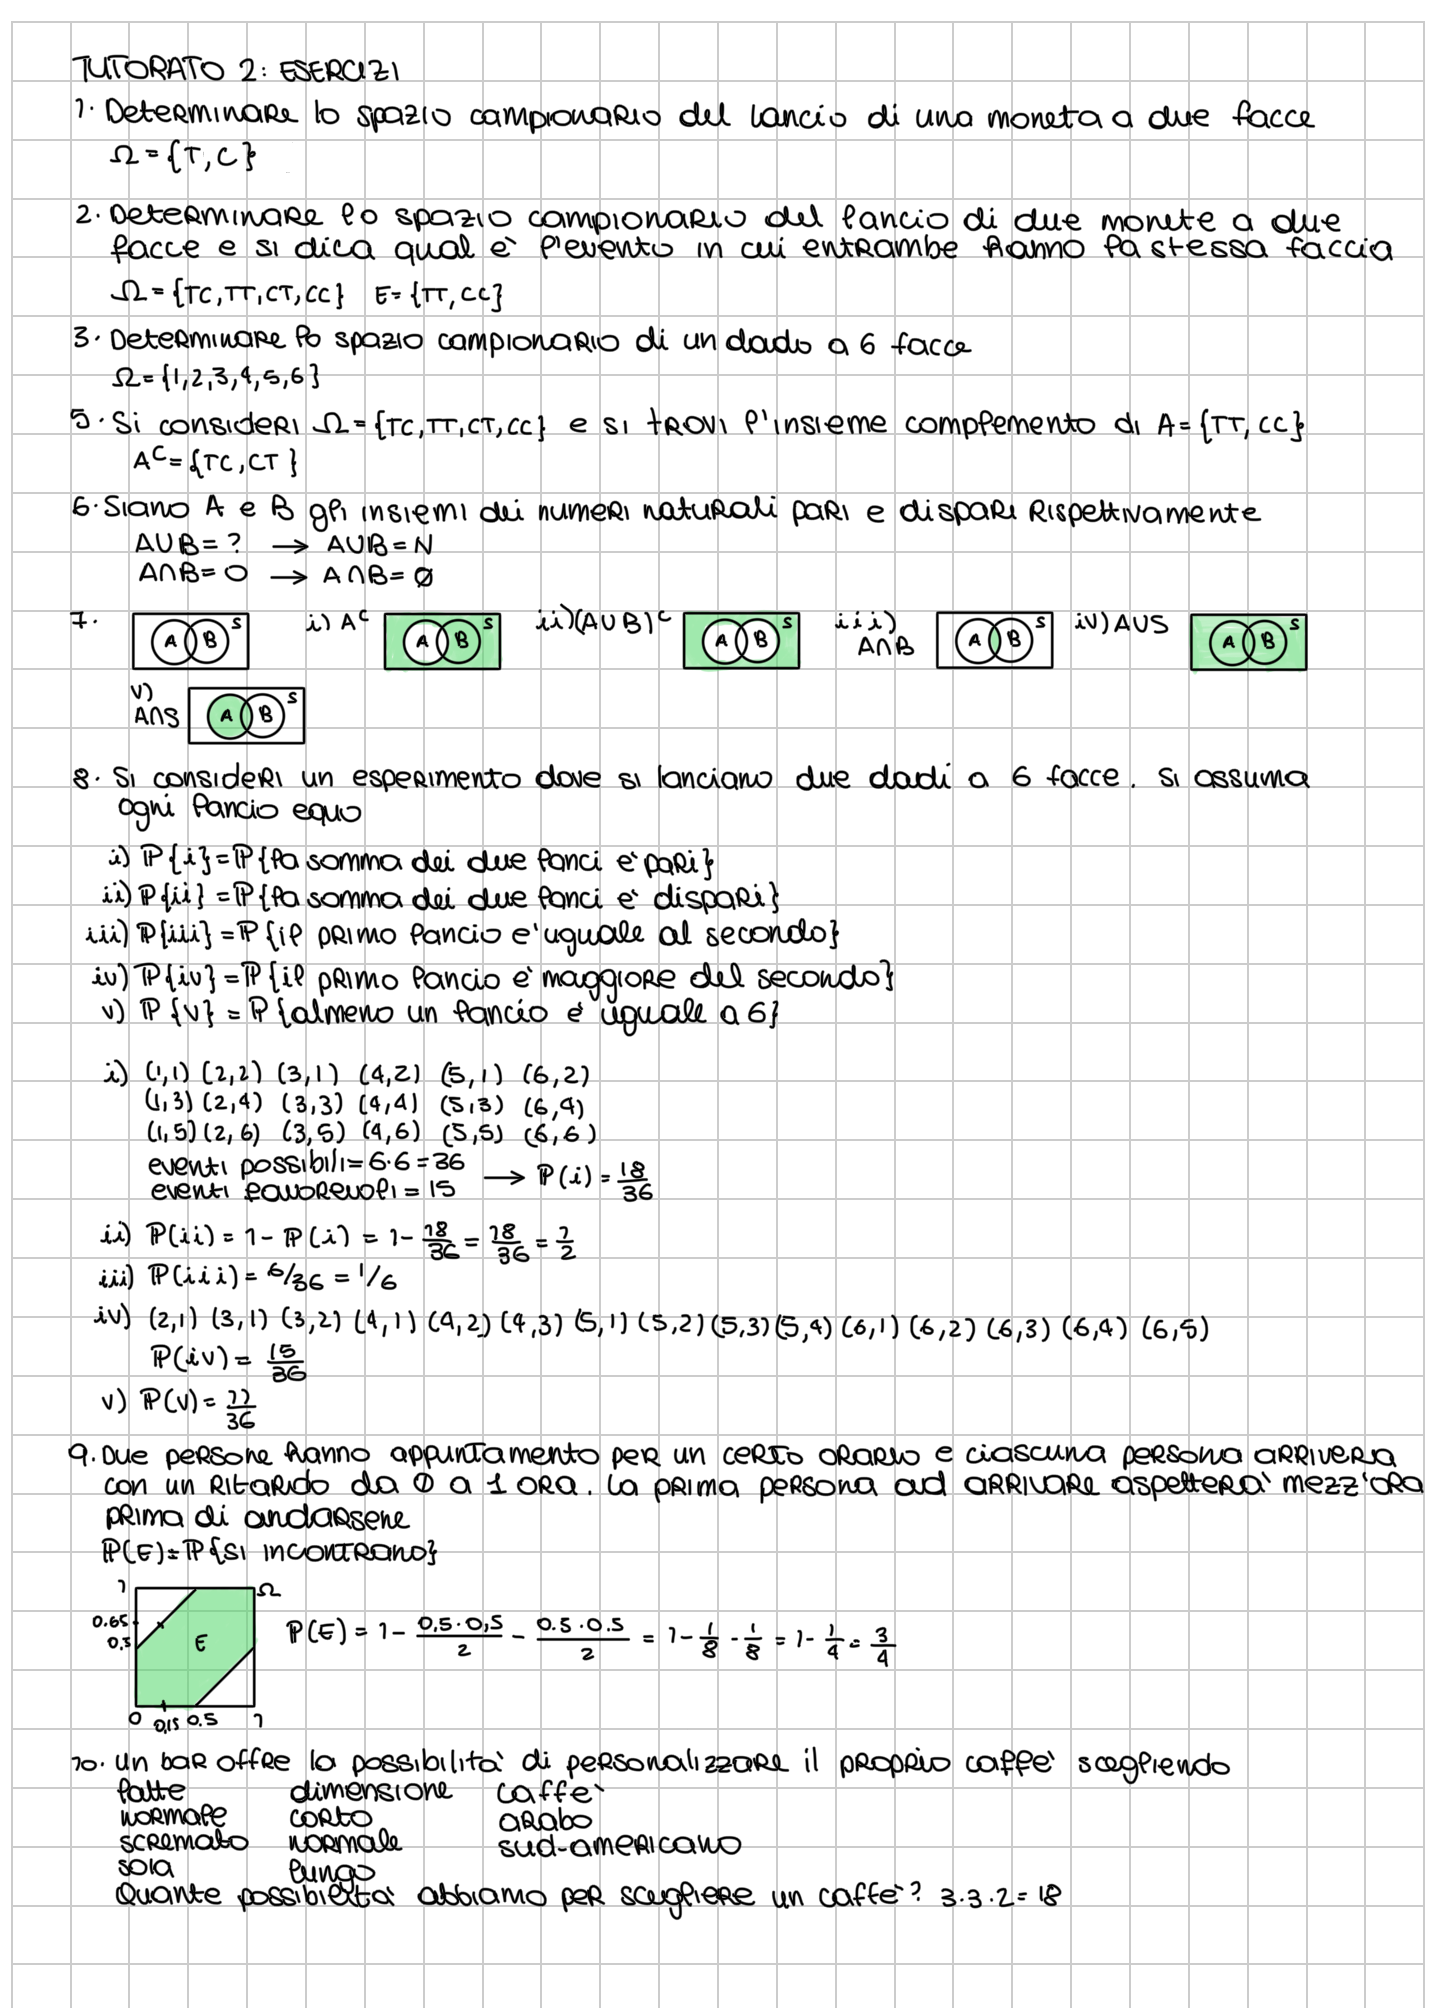 TUTORATO 2: ESERCIZI
1. Determinare lo spazio campionario del lancio di una moneta a due facce
Ω = {T, C}
2. Determinare lo spazio campionario del lancio di due monete a due
facce e si dica qual è l'evento in cui entrambe hanno la stessa faccia
Ω = {TC, TT, CT, CC} E = {TT, CC}
3. Determinare lo spazio campionario di un dado a 6 facce
Ω = {1, 2, 3, 4, 5, 6}
5. Si consideri Ω = {TC, TT, CT, CC} e si trovi l'insieme complemento di A = {TT, CC}
A^C = {TC, CT}
6. Siano A e B gli insiemi dei numeri naturali pari e dispari rispettivamente
A∪B = ? → A∪B = N
A∩B = O → A∩B = Ø
7. A B S i) A^C A B S ii) (A∪B)^C A B S iii) A∩B A B S iv) A∪S A B S
v) A∩S A B S
8. Si consideri un esperimento dove si lanciano due dadi a 6 facce. Si assuma
ogni lancio equo
i) ℙ{i} = ℙ{la somma dei due lanci è pari}
ii) ℙ{ii} = ℙ{la somma dei due lanci è dispari}
iii) ℙ{iii} = ℙ{il primo lancio è uguale al secondo}
iv) ℙ{iv} = ℙ{il primo lancio è maggiore del secondo}
v) ℙ{v} = ℙ{almeno un lancio è uguale a 6}
i) (1,1) (2,2) (3,1) (4,2) (5,1) (6,2)
(1,3) (2,4) (3,3) (4,4) (5,3) (6,4)
(1,5) (2,6) (3,5) (4,6) (5,5) (6,6)
eventi possibili = 6·6 = 36
eventi favorevoli = 15 → ℙ(i) = 18/36
ii) ℙ(ii) = 1 - ℙ(i) = 1 - 18/36 = 18/36 = 1/2
iii) ℙ(iii) = 6/36 = 1/6
iv) (2,1) (3,1) (3,2) (4,1) (4,2) (4,3) (5,1) (5,2) (5,3) (5,4) (6,1) (6,2) (6,3) (6,4) (6,5)
ℙ(iv) = 15/36
v) ℙ(v) = 11/36
9. Due persone hanno appuntamento per un certo orario e ciascuna persona arriverà
con un ritardo da 0 a 1 ora. La prima persona ad arrivare aspetterà mezz'ora
prima di andarsene
ℙ(E) = ℙ{si incontrano}
1 Ω
0.65
0,5 E ℙ(E) = 1 - 0,5·0,5/2 - 0.5·0.5/2 = 1 - 1/8 - 1/8 = 1 - 1/4 = 3/4
0 0,15 0.5 1
10. Un bar offre la possibilità di personalizzare il proprio caffè scegliendo
latte dimensione caffè
normale corto arabo
scremato normale sud-americano
soia lungo
Quante possibilità abbiamo per scegliere un caffè? 3·3·2 = 18